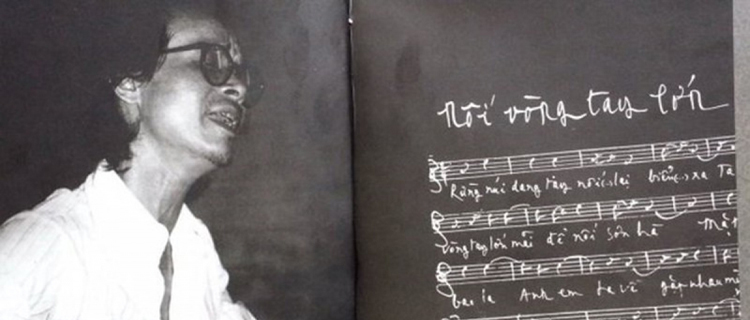 nối vòng tay lớn
Rừng núi dang tay nối lại biển xa Ta
vòng tay lớn mãi để nối sơn hà Mặt
bao la Anh em ta về gặp nhau